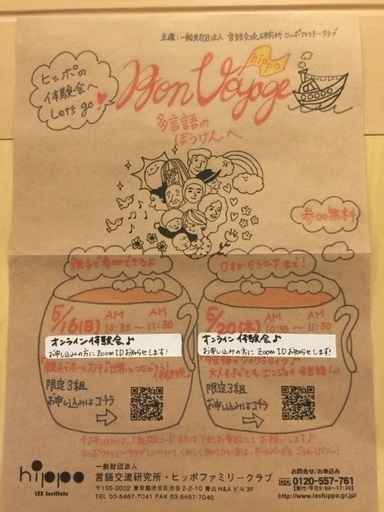 主催：一般財団法人 言語交流研究所 ヒッポファミリークラブ
ヒッポの
体験会へ
Let's go!
Bon Voyage
hippo
多言語の
ぼうけんへ
参加無料
親子で参加できるよ
0才からシニアまで！
5/16(日) AM AM
10:30 〜 11:30
オンライン体験会♪
お申し込みの方にZoom IDお知らせします！
限定3組
お申し込みはコチラ
5/20(木) AM AM
10:30 〜 11:30
オンライン体験会♪
お申し込みの方にZoom IDお知らせします！
限定3組
お申し込みはコチラ
hippo
LEX Institute
一般財団法人
言語交流研究所・ヒッポファミリークラブ
〒150-0002 東京都渋谷区渋谷 2-2-10 青山H&Aビル3F
TEL 03-5467-7041 FAX 03-5467-7040
お問合せ/お申込み
0120-557-761
(受付/平日9:00〜17:30)
http://www.lexhippo.gr.jp/